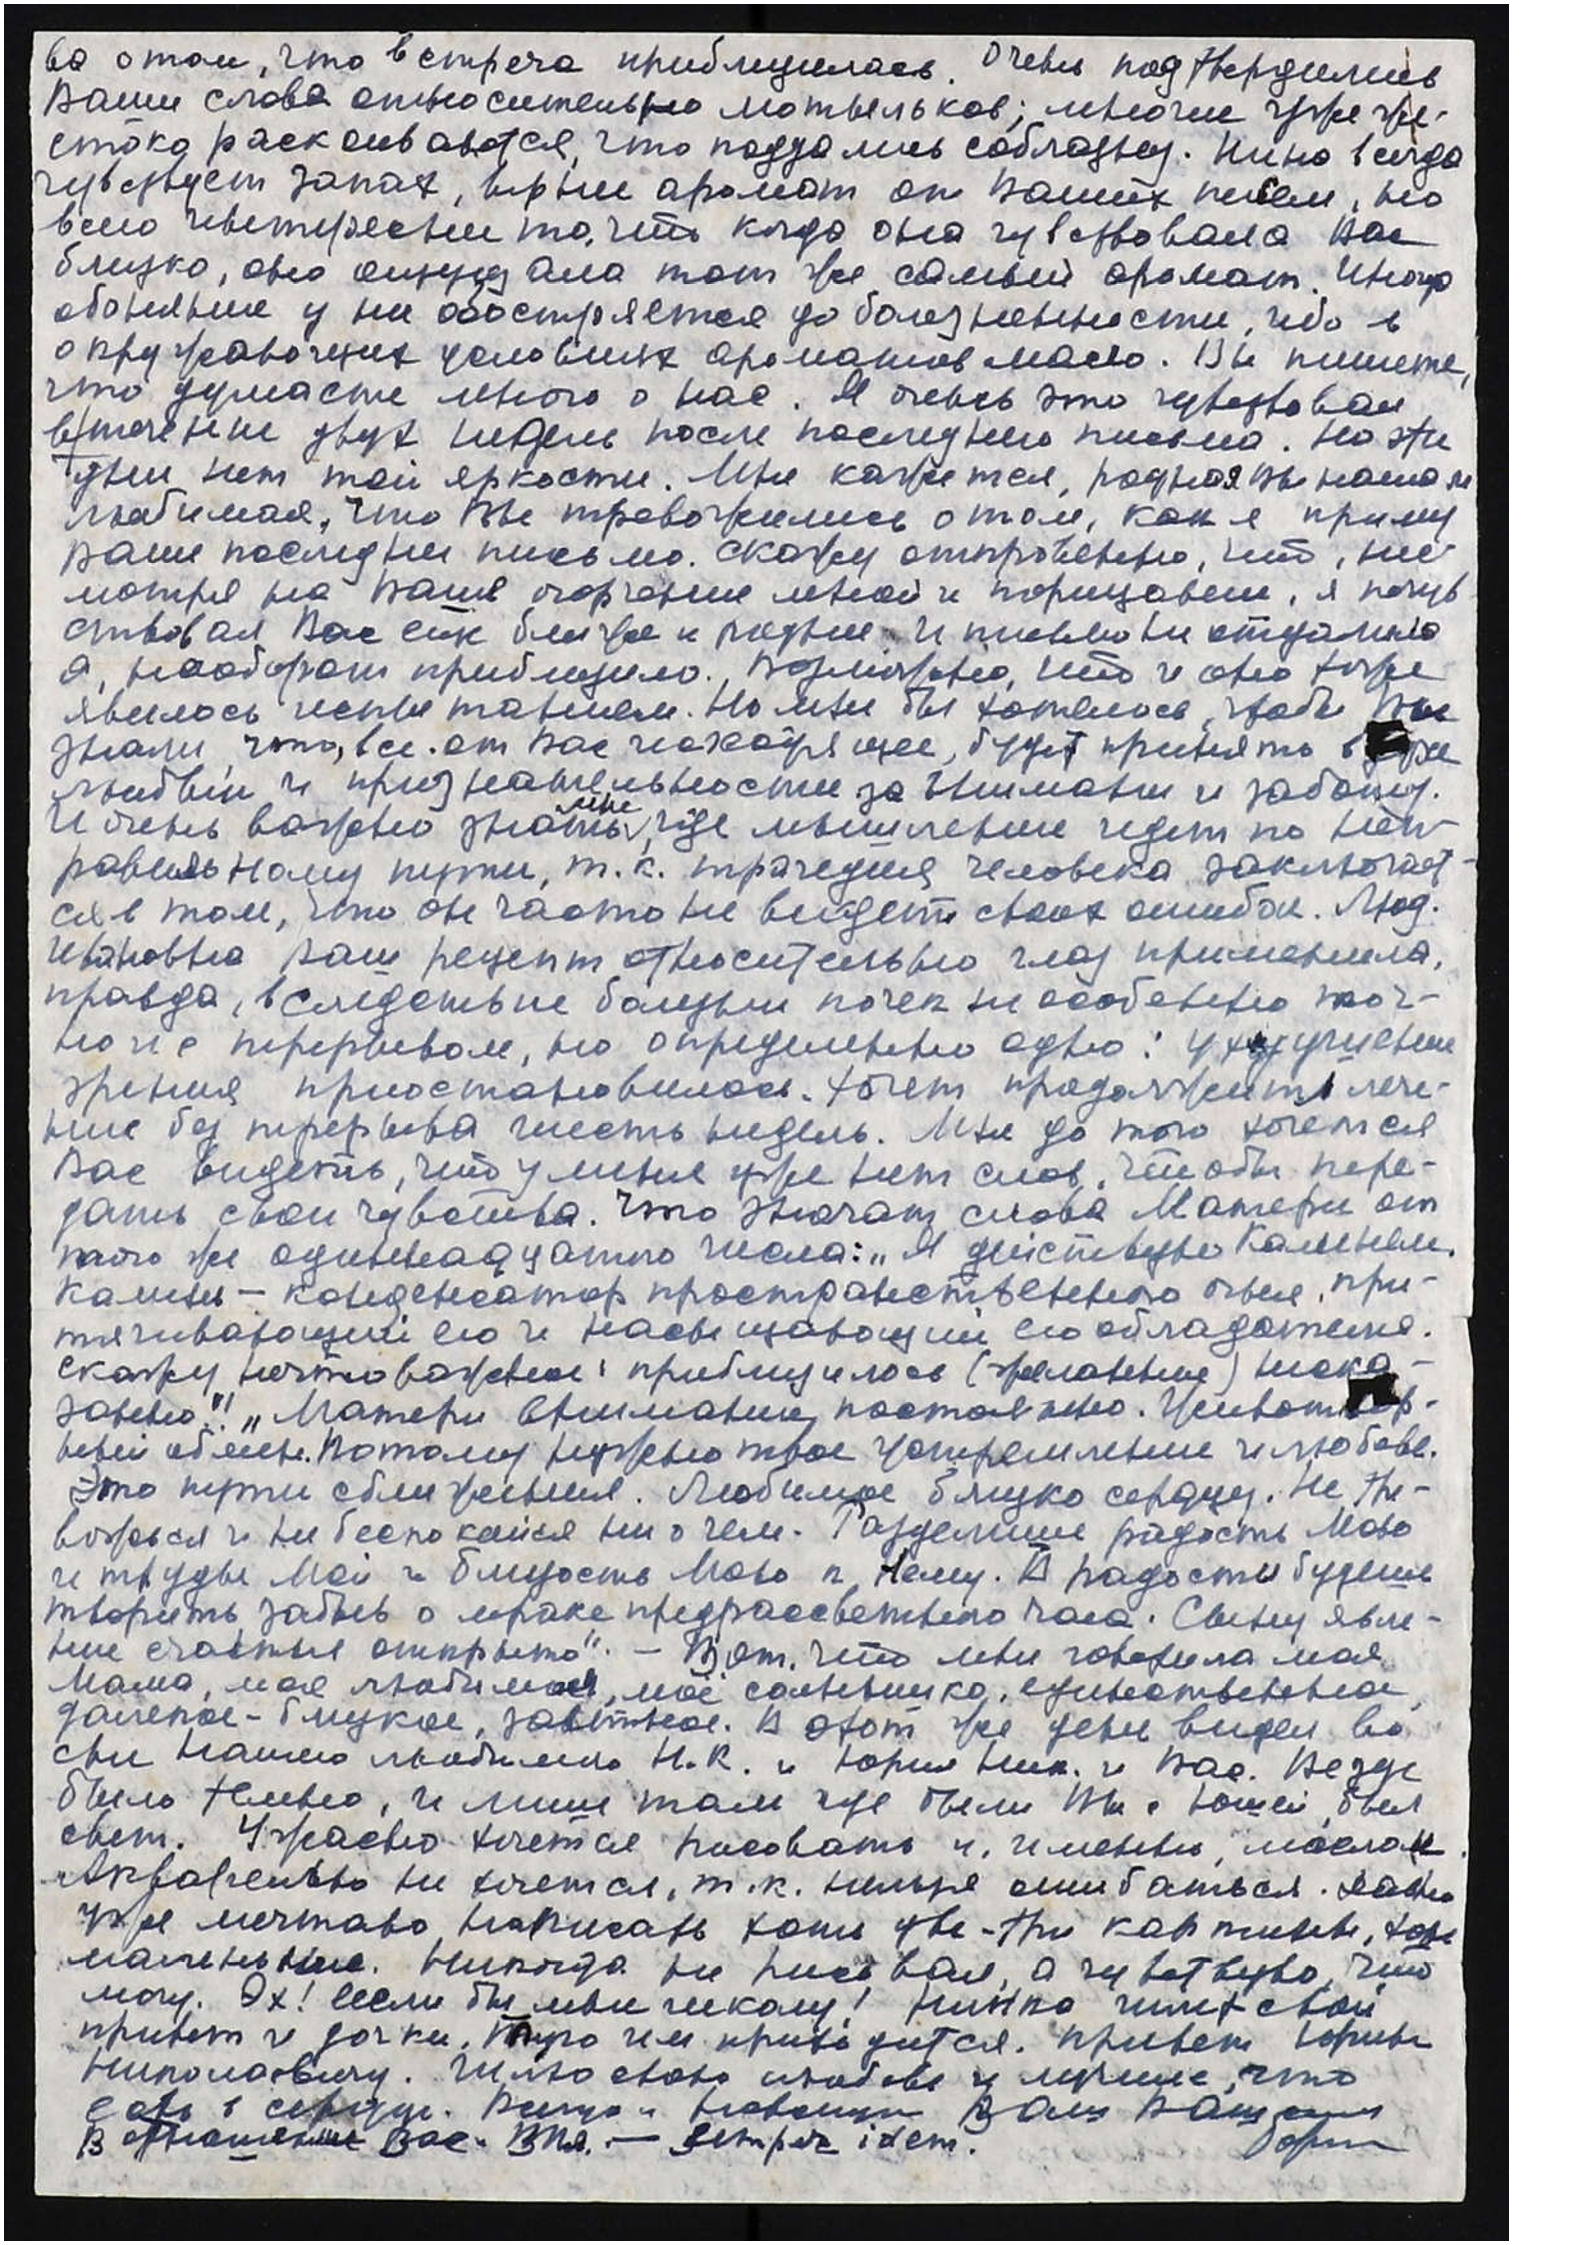 ва о том, что встреча приблизилась. Очень подтвердились
Ваши слова относительно мотыльков; многие уже же-
стоко раскаиваются, что поддались соблазну. Нина всегда
чувствует запах, вернее аромат от Ваших писем, но
всего интереснее то, что когда она чувствовала Вас
близко, она ощущала тот же самый аромат. Иногда
обоняние у нее обостряется до болезненности, ибо в
окружающих условиях ароматов мало. Вы пишете,
что думаете много о нас. Я очень это чувствовал
в течение двух недель после последнего письма. Но эти
дни нет той яркости. Мне кажется, родная Вы наша и
любимая, что Вы тревожились о том, как я приму
Ваше последнее письмо. Скажу откровенно, что, не-
мотря на Ваше огорчение мной и порицание, я почув
ствовал Вас ещё ближе и роднее и письмо не отдалило
а, наоборот приблизило. Возможно, что и оно тоже
явилось испытанием. Но мне бы хотелось, чтобы Вы
знали, что все от Вас исходящее, будет принято в духе
любви и признательности за внимание и заботу.
И очень важно знать мне, где мышление идет по неп-
равильному пути, т.к. трагедия человека заключает-
ся в том, что он часто не видит своих ошибок. Люд.
Ивановна Ваш рецепт относительно глаз применила,
правда, вследствие болезни почек не особенно точ-
но и с перерывом, но определенно одно: ухудшение
зрения приостановилось. Хочет продолжить лече-
ние без перерыва шесть недель. Мне до того хочется
Вас видеть, что у меня уже нет слов, чтобы пере-
дать свои чувства. Что значат слова Матери от
того же одиннадцатого числа: „Я действую Камнем.
Камень – конденсатор пространственного огня, при-
тягивающий его и насыщающий его обладателя.
Скажу нечто важное: приблизилось (желанное) неска-
занно"! „Матери внимание постоянно. Животвор-
ный обмен. Потому нужно твое устремление и любовь.
Это пути сближения. Любимое близко сердцу. Не тре-
вожься и не беспокойся ни о чем. Разделишь радость Мою
и труды Мои и близость Мою к Нему. В радости будешь
творить забыв о мраке предрассветного часа. Свыше явле-
ние счастья открыто". – Вот, что мне говорила моя
Мама, моя любимая, моё солнышко, единственное,
далекое-близкое, заветное. В этот же день видел во
сне нашего любимого Н.К. и Юрия Ник. и Вас. Везде
было темно, и лишь там где были Вы с Юшей, был
свет. Ужасно хочется рисовать и, именно, маслом.
Акварелью не хочется, т.к. нельзя ошибаться. Давно
уже мечтаю написать хоть две-три картины, хотя
маленькие. Никогда не писал, а чувствую, что
могу. Эх! если бы мне школу! Нинка шлет свой
привет и дочки. Туго им приходится. Привет Юрию
Николаевичу. Шлю свою любовь и лучшее, что
есть в сердце. Всегда и навсегда Ваш Ваш
В отношение Вас. Вл. – встреч идет. Борис